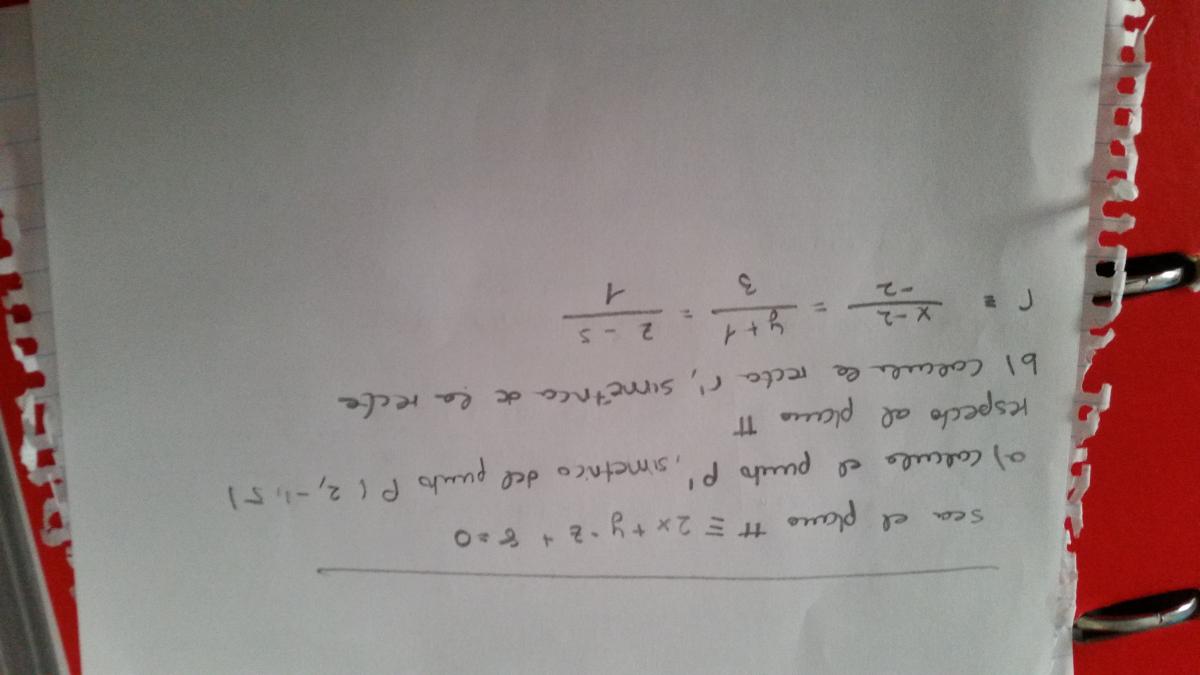 sea el plano π ≡ 2x + y - z + 8 = 0
a) calcula el punto P', simétrico del punto P(2,-1,5)
respecto al plano π
b) calcula la recta r', simétrica de la recta
r ≡ x-2/-2 = y+1/3 = z-5/1